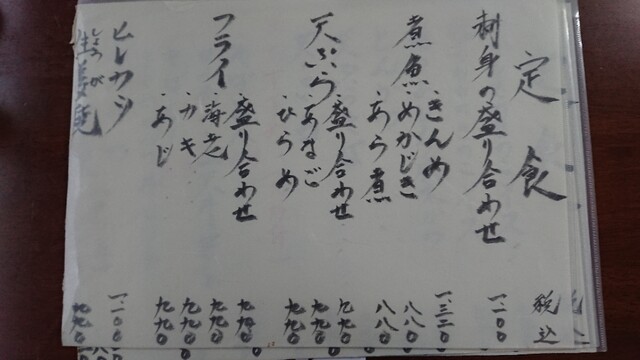 定食 税込
刺身の盛り合わせ 一、一〇〇
煮魚・きんめ 一、三二〇
・めかじき 八八〇
・あら煮 八八〇
天ぷら・盛り合わせ 九九〇
・あなご 九九〇
・ひらめ 九九〇
フライ・盛り合わせ 九九〇
・海老 九九〇
・カキ 九九〇
・あじ 九九〇
ヒレカツ 一、一〇〇
しょうが
生姜焼 九九〇